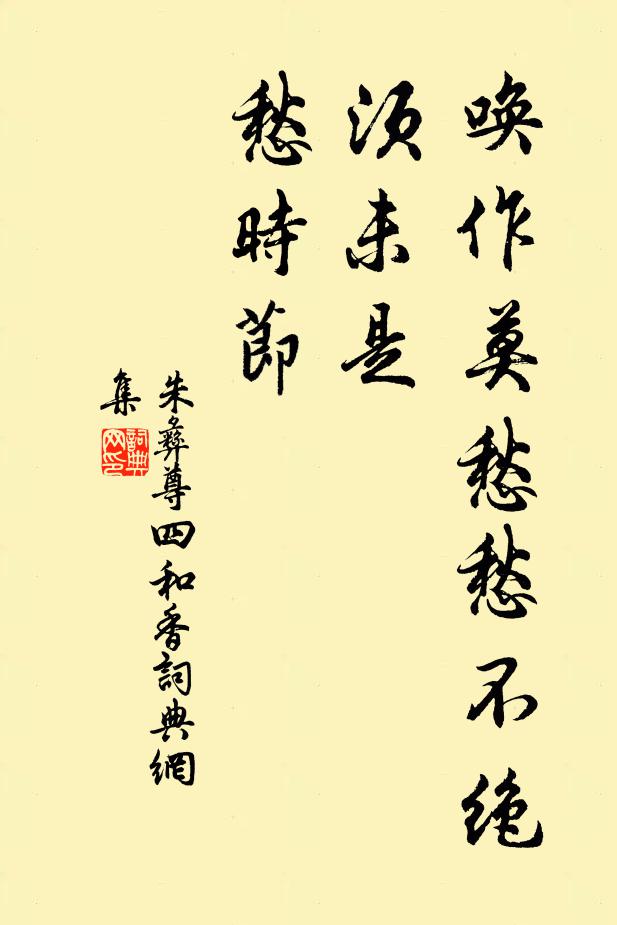 唤作莫愁愁不绝
须未是
愁時節
朱彝尊四和香詞典網
集
詞典
网印